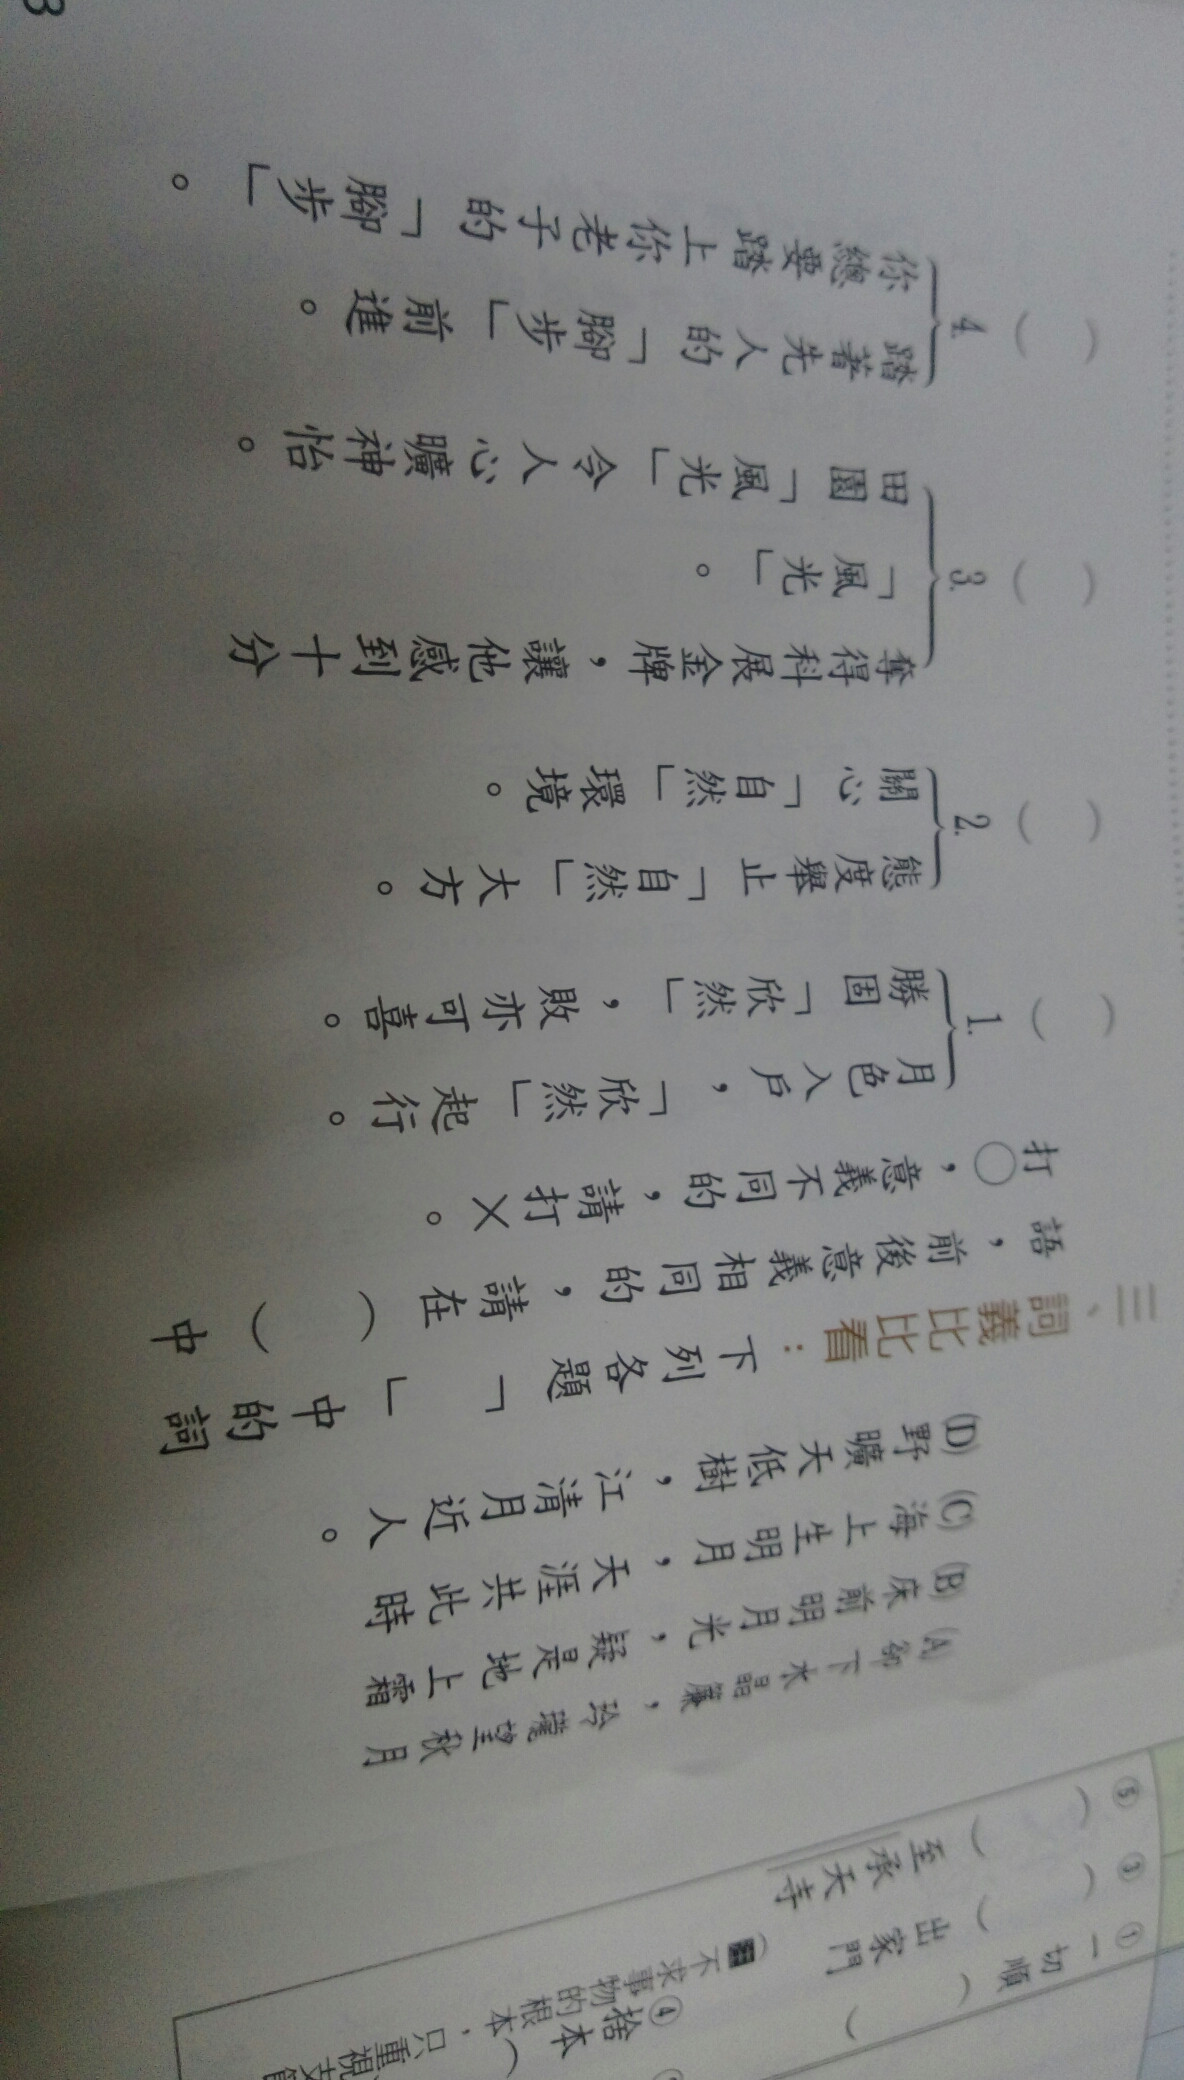 ① 一切順( )
④ 捨本(
不求事物的根本,只重視
③ ( )出家門
⑤ ( )至承天寺
(A) 卻下水晶簾,玲瓏望秋月
(B) 床前明月光,疑是地上霜
(C) 海上生明月,天涯共此時
(D) 野曠天低樹,江清月近人。
三、詞義比比看:下列各題「 」中的詞
語,前後意義相同的,請在( )中
打○,意義不同的,請打×。
( ) 1. 月色入戶,「欣然」起行。
勝固「欣然」,敗亦可喜。
( ) 2. 態度舉止「自然」大方。
關心「自然」環境。
( ) 3. 奪得科展金牌,讓他感到十分
「風光」。
田園「風光」令人心曠神怡。
( ) 4. 踏著先人的「腳步」前進。
你總要踏上你老子的「腳步」。